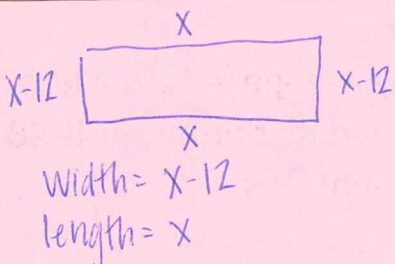 X
X-12 X-12
X
Width= X-12
length= X